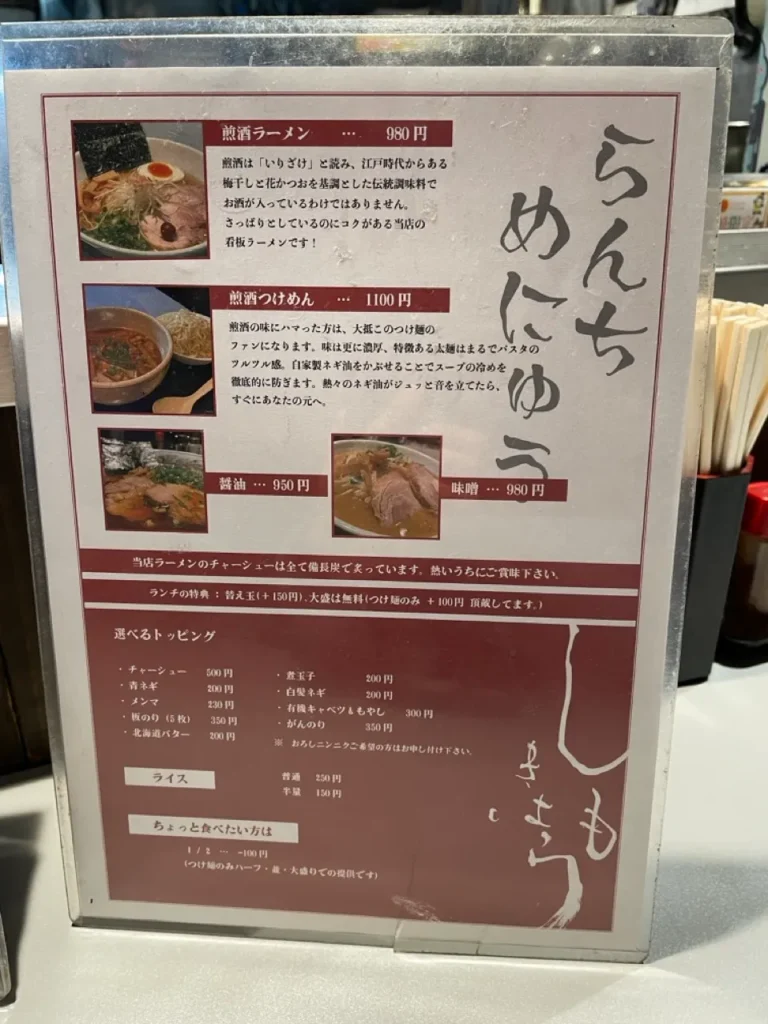 らんち
めにゅう
煎酒ラーメン … 980円
煎酒は「いりざけ」と読み、江戸時代からある
梅干しと花かつおを基調とした伝統調味料で
お酒が入っているわけではありません。
さっぱりとしているのにコクがある当店の
看板ラーメンです！
煎酒つけめん … 1100円
煎酒の味にハマった方は、大抵このつけ麺の
ファンになります。味は更に濃厚、特徴ある太麺はまるでパスタの
ツルツル感。自家製ネギ油をかぶせることでスープの冷めを
徹底的に防ぎます。熱々のネギ油がジュッと音を立てたら、
すぐにあなたの元へ。
醤油 … 950円
味噌 … 980円
当店ラーメンのチャーシューは全て備長炭で炙っています。熱いうちにご賞味下さい。
ランチの特典：替え玉(+150円)、大盛は無料(つけ麺のみ +100円 頂戴してます。)
選べるトッピング
・チャーシュー 500円
・青ネギ 200円
・メンマ 230円
・板のり (5枚) 350円
・北海道バター 200円
・煮玉子 200円
・白髪ネギ 200円
・有機キャベツ&もやし 300円
・がんのり 350円
※ おろしニンニクご希望の方はお申し付け下さい。
ライス
普通 250円
半量 150円
ちょっと食べたい方は
1/2 … -100円
(つけ麺のみハーフ・並・大盛りでの提供です)
しも